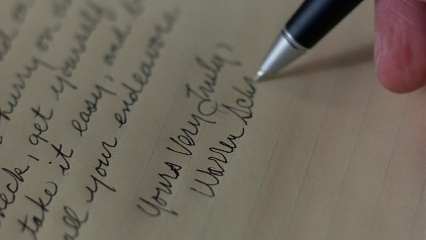 hurry on
get yourself
take it easy, and
all your endeavors.
Yours Very Truly,
Warren Sch